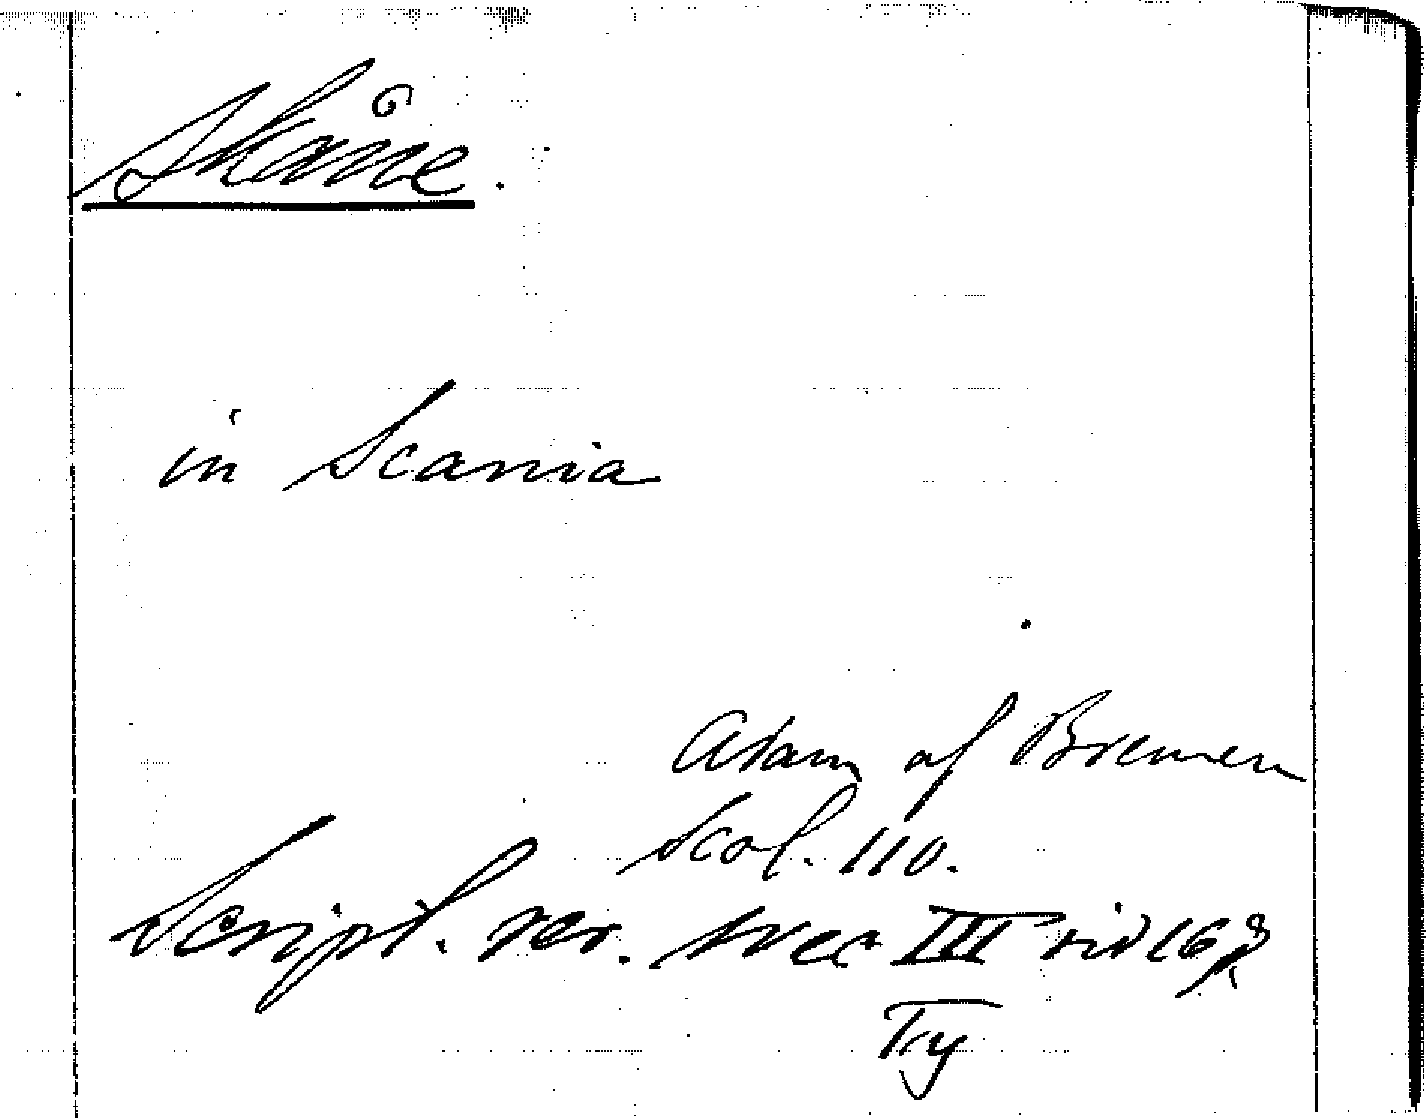 Skåne.
in Scania
Adam of Bremen
Scol. 110.
Script. rer. svec III sid
Ty